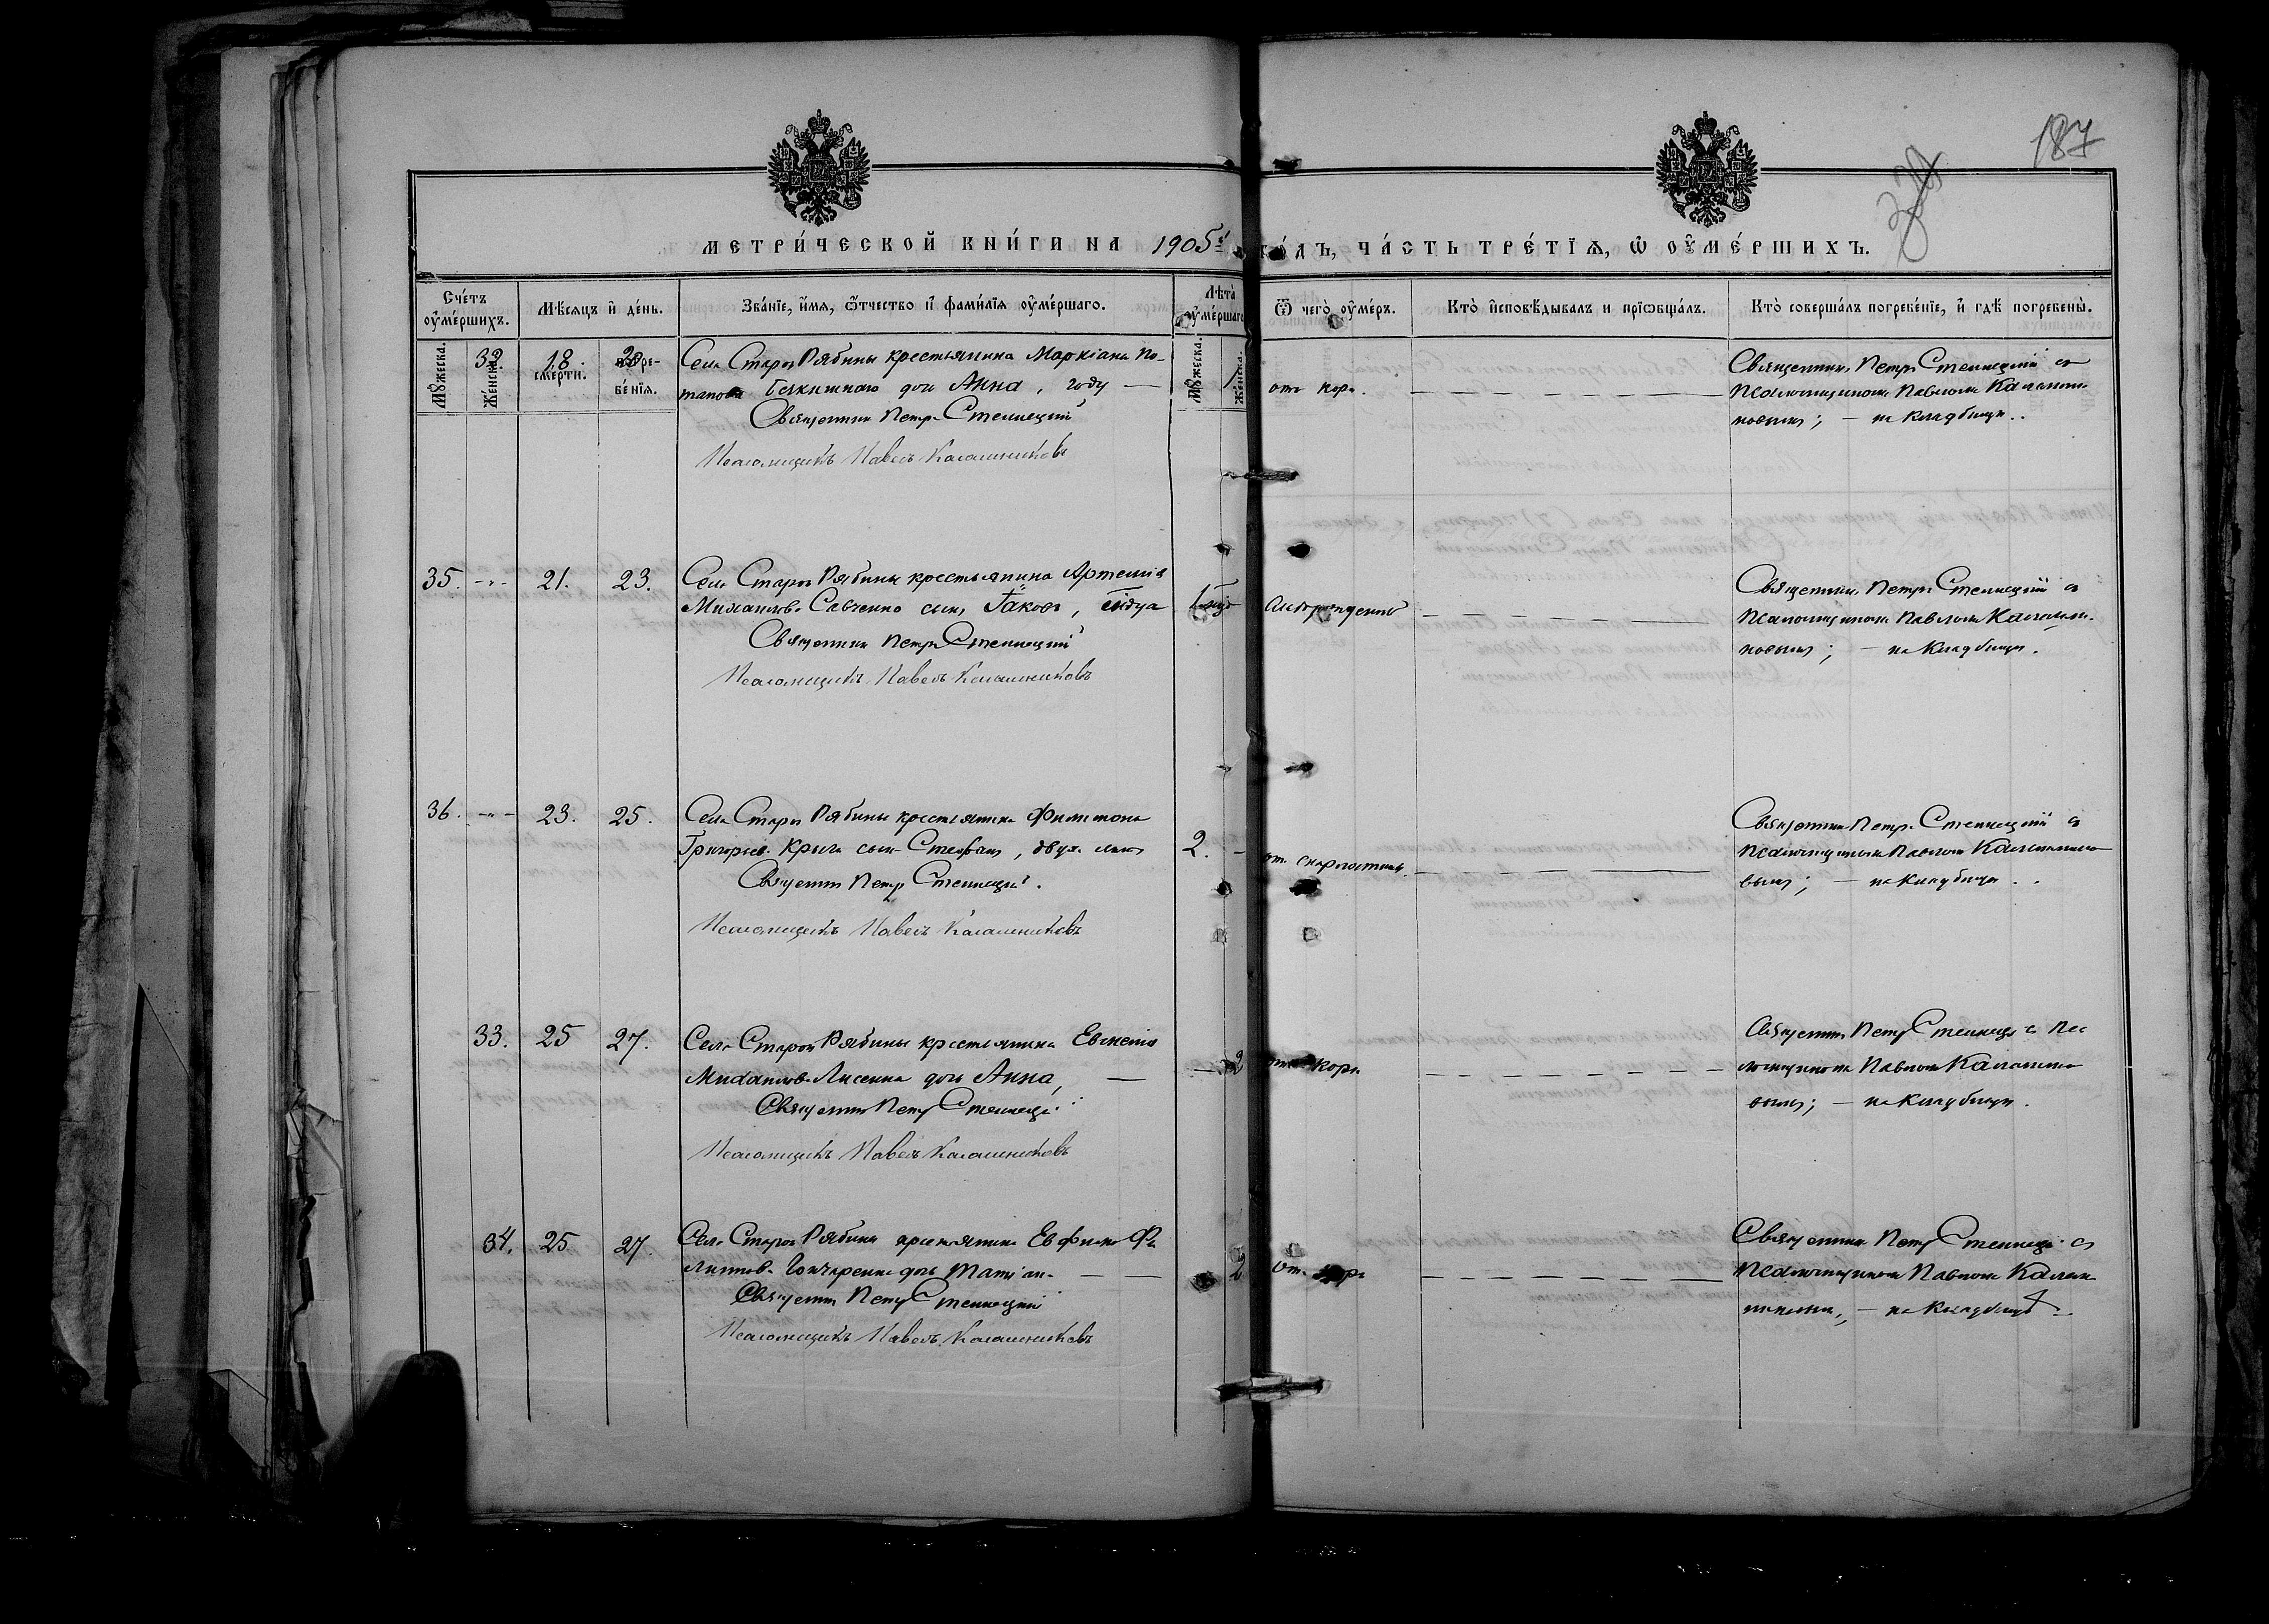 187
МЕТРИ́ЧЕСКОЙ КНИ́ГИ НА 1905й ГО́ДЪ, ЧА́СТЬ ТРЕ́ТІѦ, Ѡ ОУ҆МЕ́РШИХЪ.
Сче́тъ оу҆ме́ршихъ.
Мѣ́сяцъ и҆ де́нь.
Зва́нїе, и҆́мя, ѻ҆́тчество и҆ фами́лїя оу҆ме́ршаго.
Лѣта̀ оу҆ме́ршаго
Ѿ чегѡ̀ оу҆́меръ.
Кто̀ и҆сповѣ́дывалъ и прїѡбща́лъ.
Кто̀ соверша́лъ погребе́нїе, и҆ гдѣ̀ погребены̀.
Мꙋ́жеска.
Же́нска.
сме́рти.
погре-
бе́нїя.
Мꙋ́жеска.
Же́нска.
32. 18. 20. Села Старой Рябины крестьянина Маркіана По-
тапова дочь Анна, году — 1 отъ кори.
Священникъ Петръ Стеллецкій
Псаломщикъ Павелъ Калашниковъ
Священникъ Петръ Стеллецкій съ
псаломщикомъ Павломъ Калашни-
ковымъ; — на кладбищѣ.
35. 21. 23. Села Старой Рябины крестьянина Артемія
Михаилова Савченко сынъ Іаковъ,
Священникъ Петръ Стеллецкій
Псаломщикъ Павелъ Калашниковъ
Священникъ Петръ Стеллецкій съ
псаломщикомъ Павломъ Калашни-
ковымъ; — на кладбищѣ.
36. 23. 25. Села Старой Рябины крестьянина Филимона
Григорьева сынъ Стефанъ, двухъ лѣтъ 2. отъ скарлатины.
Священникъ Петръ Стеллецкій.
Псаломщикъ Павелъ Калашниковъ
Священникъ Петръ Стеллецкій съ
псаломщикомъ Павломъ Калашнико-
вымъ; — на кладбищѣ.
33. 25 27. Села Старой Рябины крестьянина Евгенія
Михаилова Лисенка дочь Анна, — 2 отъ кори
Священникъ Петръ Стеллецкій
Псаломщикъ Павелъ Калашниковъ
Священникъ Петръ Стеллецкій съ пса-
ломщикомъ Павломъ Калашнико-
вымъ; — на кладбищѣ.
34. 25 27. Села Старой Рябины крестьянина Евфима Фи-
липпова Гончаренка дочь Татіана — 2 отъ кори
Священникъ Петръ Стеллецкій
Псаломщикъ Павелъ Калашниковъ
Священникъ Петръ Стеллецкій съ
псаломщикомъ Павломъ Калаш-
никовымъ, — на кладбищѣ